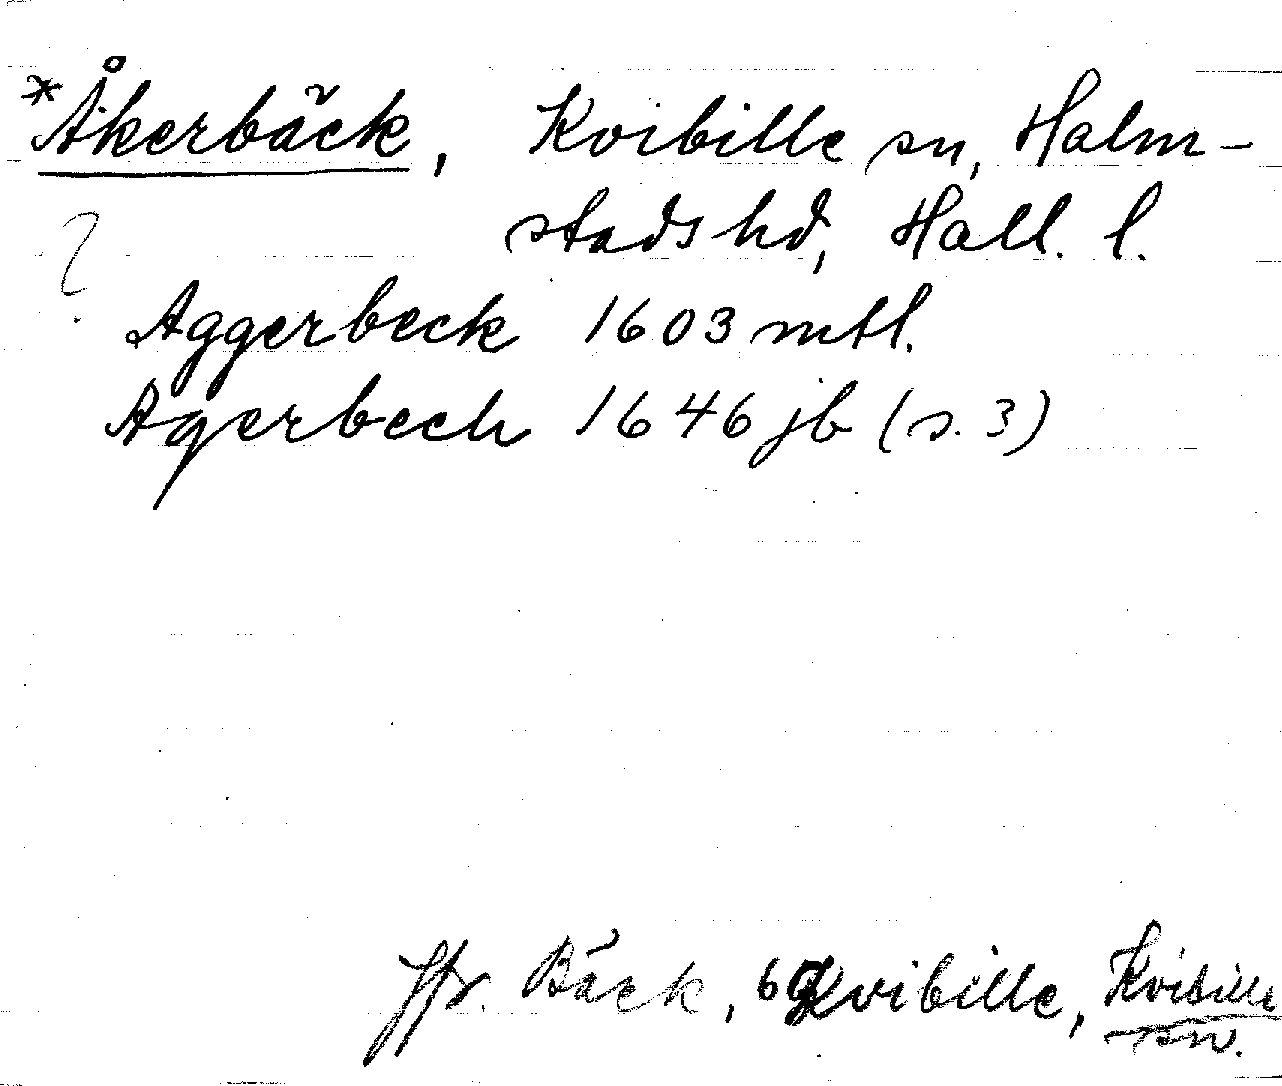 *Åkerbäck, Kvibille sn, Halm-
stads hd, Hall. l.
?
Aggerbeck 1603 mtl.
Agerbech 1646 jb (s. 3)
Jfr. Bäck, by Kvibille, Kvibille
sn.